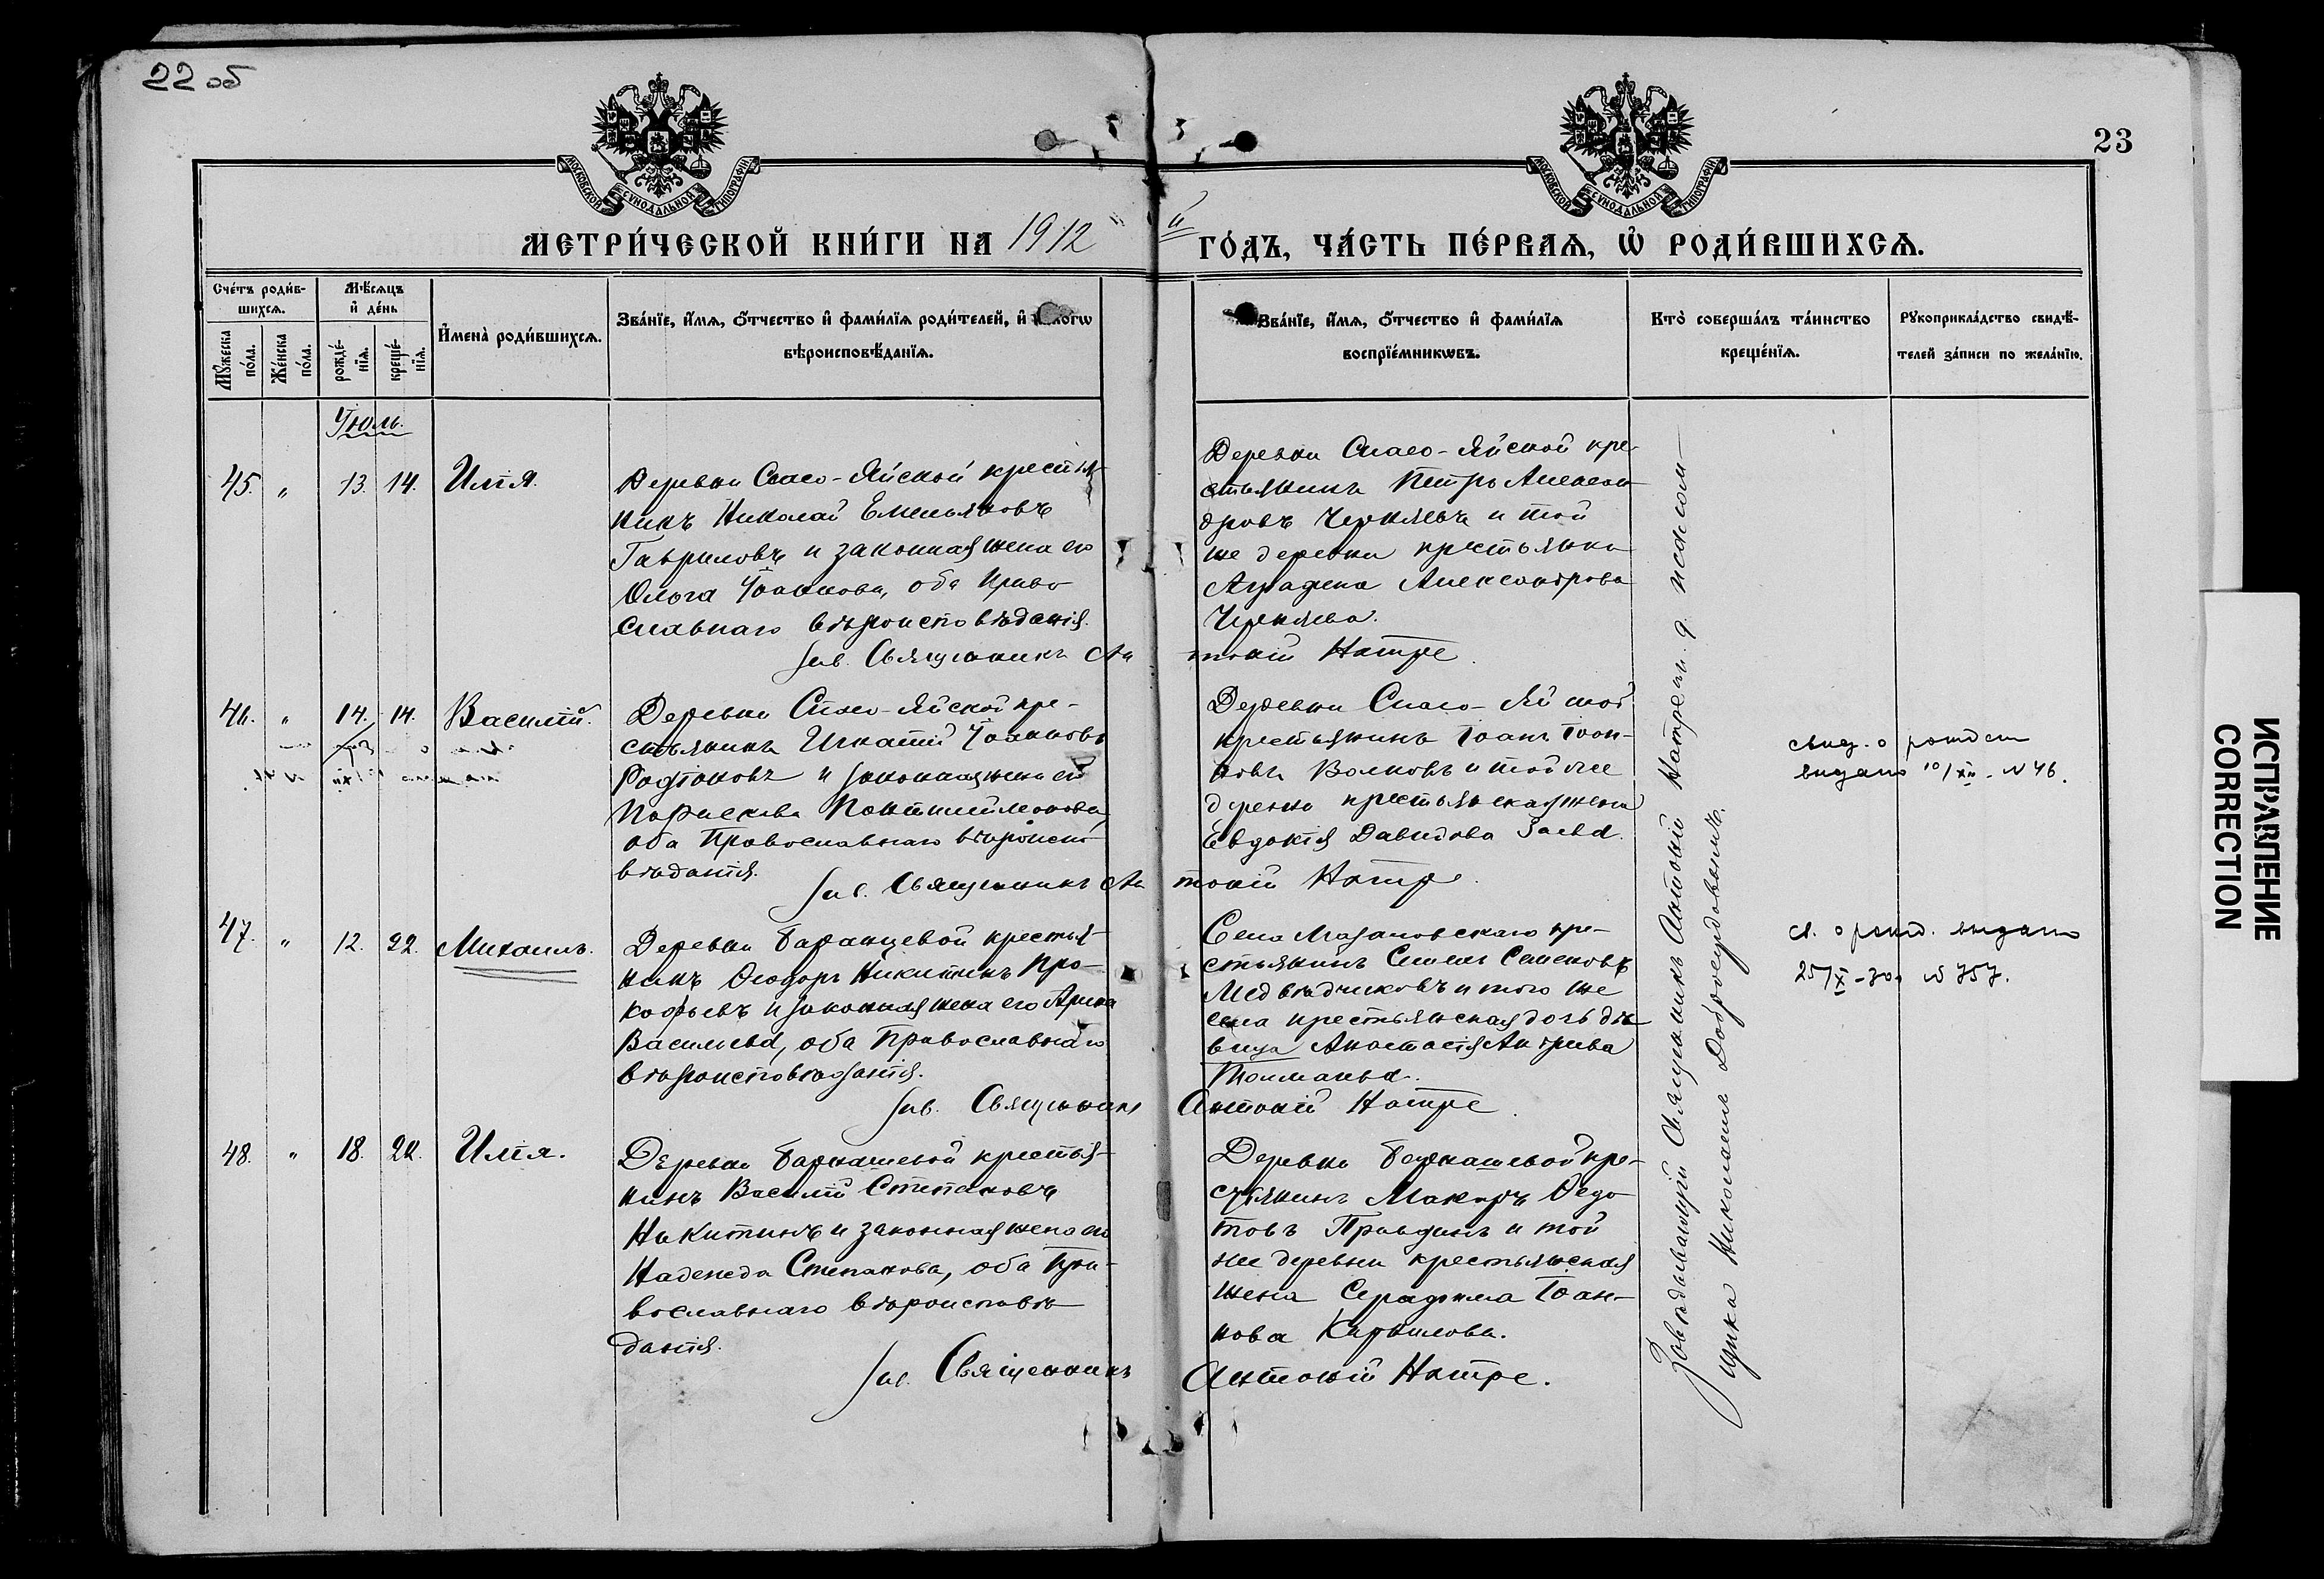 22 об
23
МОСКОВСКОЙ СѴНОДАЛЬНОЙ ТИПОГРАФІИ
МОСКОВСКОЙ СѴНОДАЛЬНОЙ ТИПОГРАФІИ
МЕТРИ́ЧЕСКОЙ КНИ́ГИ НА 1912й ГО́ДЪ, ЧА́СТЬ ПЕ́РВАѦ, Ѡ҆ РОДИ́ВШИХСѦ.
Сче́тъ роди́в-
шихсѧ.
Мꙋ́жеска по́ла.
Же́нска по́ла.
Мѣ́сѧцъ
и҆ де́нь
рожде́-
нїѧ.
креще́-
нїѧ.
И҆мена̀ роди́вшихсѧ.
Зва́нїе, и҆́мѧ, ѻ҆́тчество и҆ фами́лїѧ роди́телей, и҆ како́гѡ
вѣроисповѣ́данїѧ.
Зва́нїе, и҆́мѧ, ѻ҆́тчество и҆ фами́лїѧ
воспрїе́мникѡвъ.
Кто̀ соверша́лъ та́инство
креще́нїѧ.
Рꙋкоприкла́дство свидѣ́-
телей за́писи по жела́нїю.
Іюль.
45. " 13. 14. Илія.
Деревни Спасо-Яйской крестья-
нинъ Николай Емельяновъ
Гавриловъ и законная жена его
Ольга Іоаннова, оба Право
славнаго вѣроисповѣданія.
Деревни Спасо-Яйской кре-
стьянинъ Петръ Алексан
дровъ Черняевъ и той
же деревни крестьянка
Аграфена Александрова
Черняева.
Зав. Священникъ Антоній Натре.
46. " 14. 14. Василій.
Деревни Спасо-Яйской кре-
стьянинъ Игнатій Іоанновъ
Родіоновъ и законная жена его
Параскева Пантилимонова,
оба Православнаго вѣроиспо
вѣданія.
Деревни Спасо-Яй ской
крестьянинъ Іоанъ Іоан-
новъ Волковъ и той же
деревни крестьянская жена
Евдокія Давидова Заева.
свид. о рожден
выдано 10/XII - N 46.
Зав. Священникъ Антоній Натре.
47. " 12. 22. Михаилъ.
Деревни Баранцевой крестья-
нинъ Ѳеодоръ Никитинъ Про-
кофьевъ и законная жена его Арина
Васильева, оба Православнаго
вѣроисповѣданія.
Села Мазаловскаго кре-
стьянинъ Семенъ Семеновъ
Медвѣдчиковъ и того же
села крестьянская дочь дѣ
вица Анастасія Андреева
Толмачева.
св. о рожд. выдано
25/XI-30г N 757.
Зав. Священникъ Антоній Натре.
48. " 18. 22. Илія.
Деревни Баркашевой крестья-
нинъ Василій Степановъ
Никитинъ и законная жена его
Надежда Степанова, оба Пра-
вославнаго вѣроисповѣ
данія.
Деревни Баркашевой кре-
стьянинъ Макаръ Ѳедо
товъ Правдинъ и той
же деревни крестьянская
жена Серафима Іоан-
нова Кирилова.
Зав. Священникъ Антоній Натре.
Завѣдывающій Священникъ Антоній Натре и. д. псалом-
щика Николаемъ Добросердовымъ.
ИСПРАВЛЕНИЕ
CORRECTION